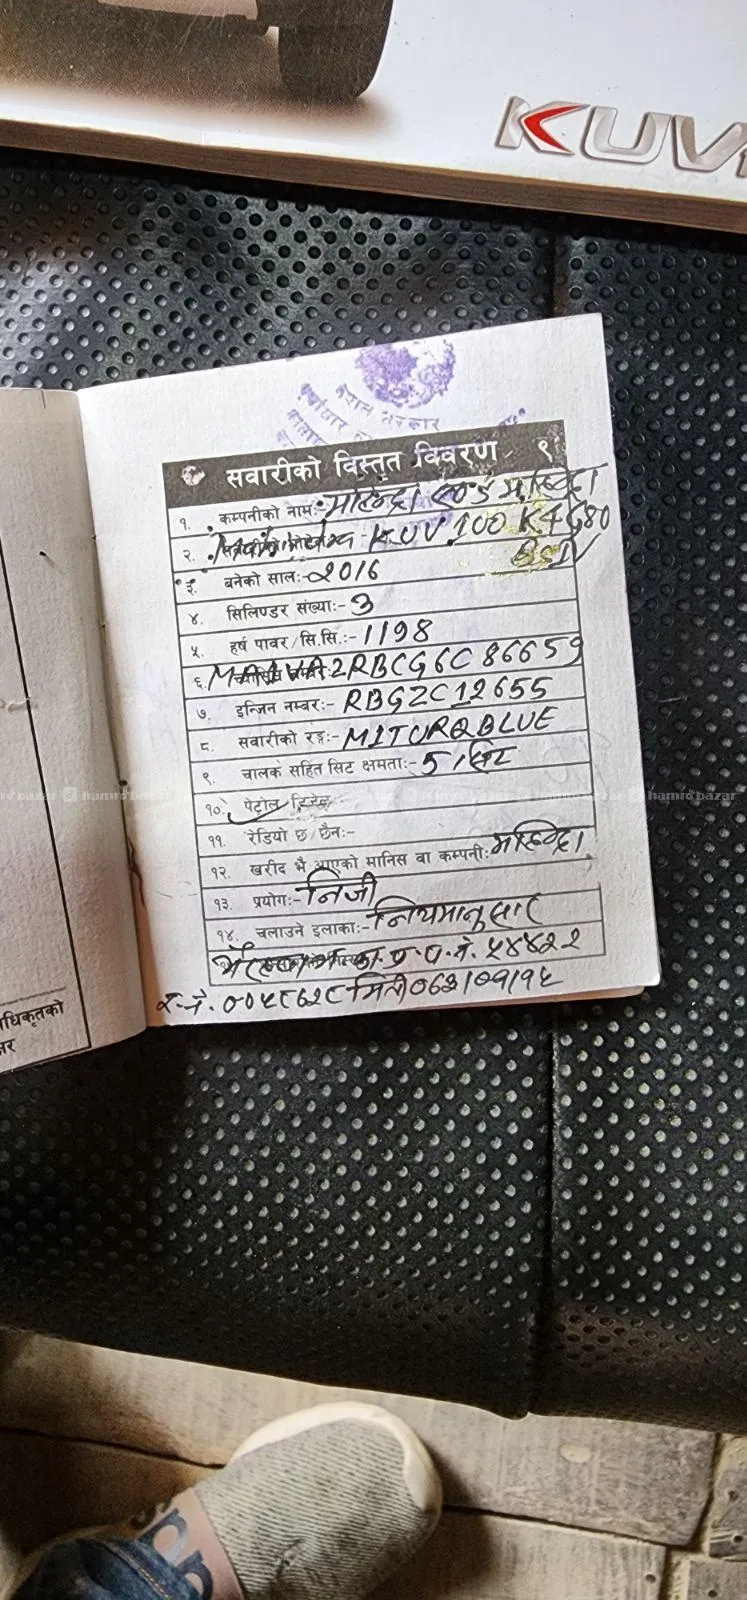 KUV
नेपाल सरकार
सवारीको विस्तृत विवरण ९
१. कम्पनीको नाम:- महिन्द्रा एण्ड महिन्द्रा
२. Mahindra - KUV 100 K4 G80
BSIV
३. बनेको साल:- 2016
४. सिलिण्डर संख्या:- 3
५. हर्ष पावर/सि.सि.:- 1198
६. MA1YA2RBCG6C86659
७. इन्जिन नम्बर:- RBGZC12655
८. सवारीको रङ्ग:- MITURQBLUE
९. चालक सहित सिट क्षमता:- 5 सिट
१०. पेट्रोल डिजेल
११. रेडियो छ/छैन:-
१२. खरीद भै आएको मानिस वा कम्पनी: महिन्द्रा
१३. प्रयोग:- निजी
१४. चलाउने इलाका:- नियमानुसार
भैरहवा भ.का.प्र.प.नं. ५४४२२
र.नं. ००५८७२८ मिति ०७३/०९/१५
धिकृतको
hamrobazar hamrobazar hamrobazar